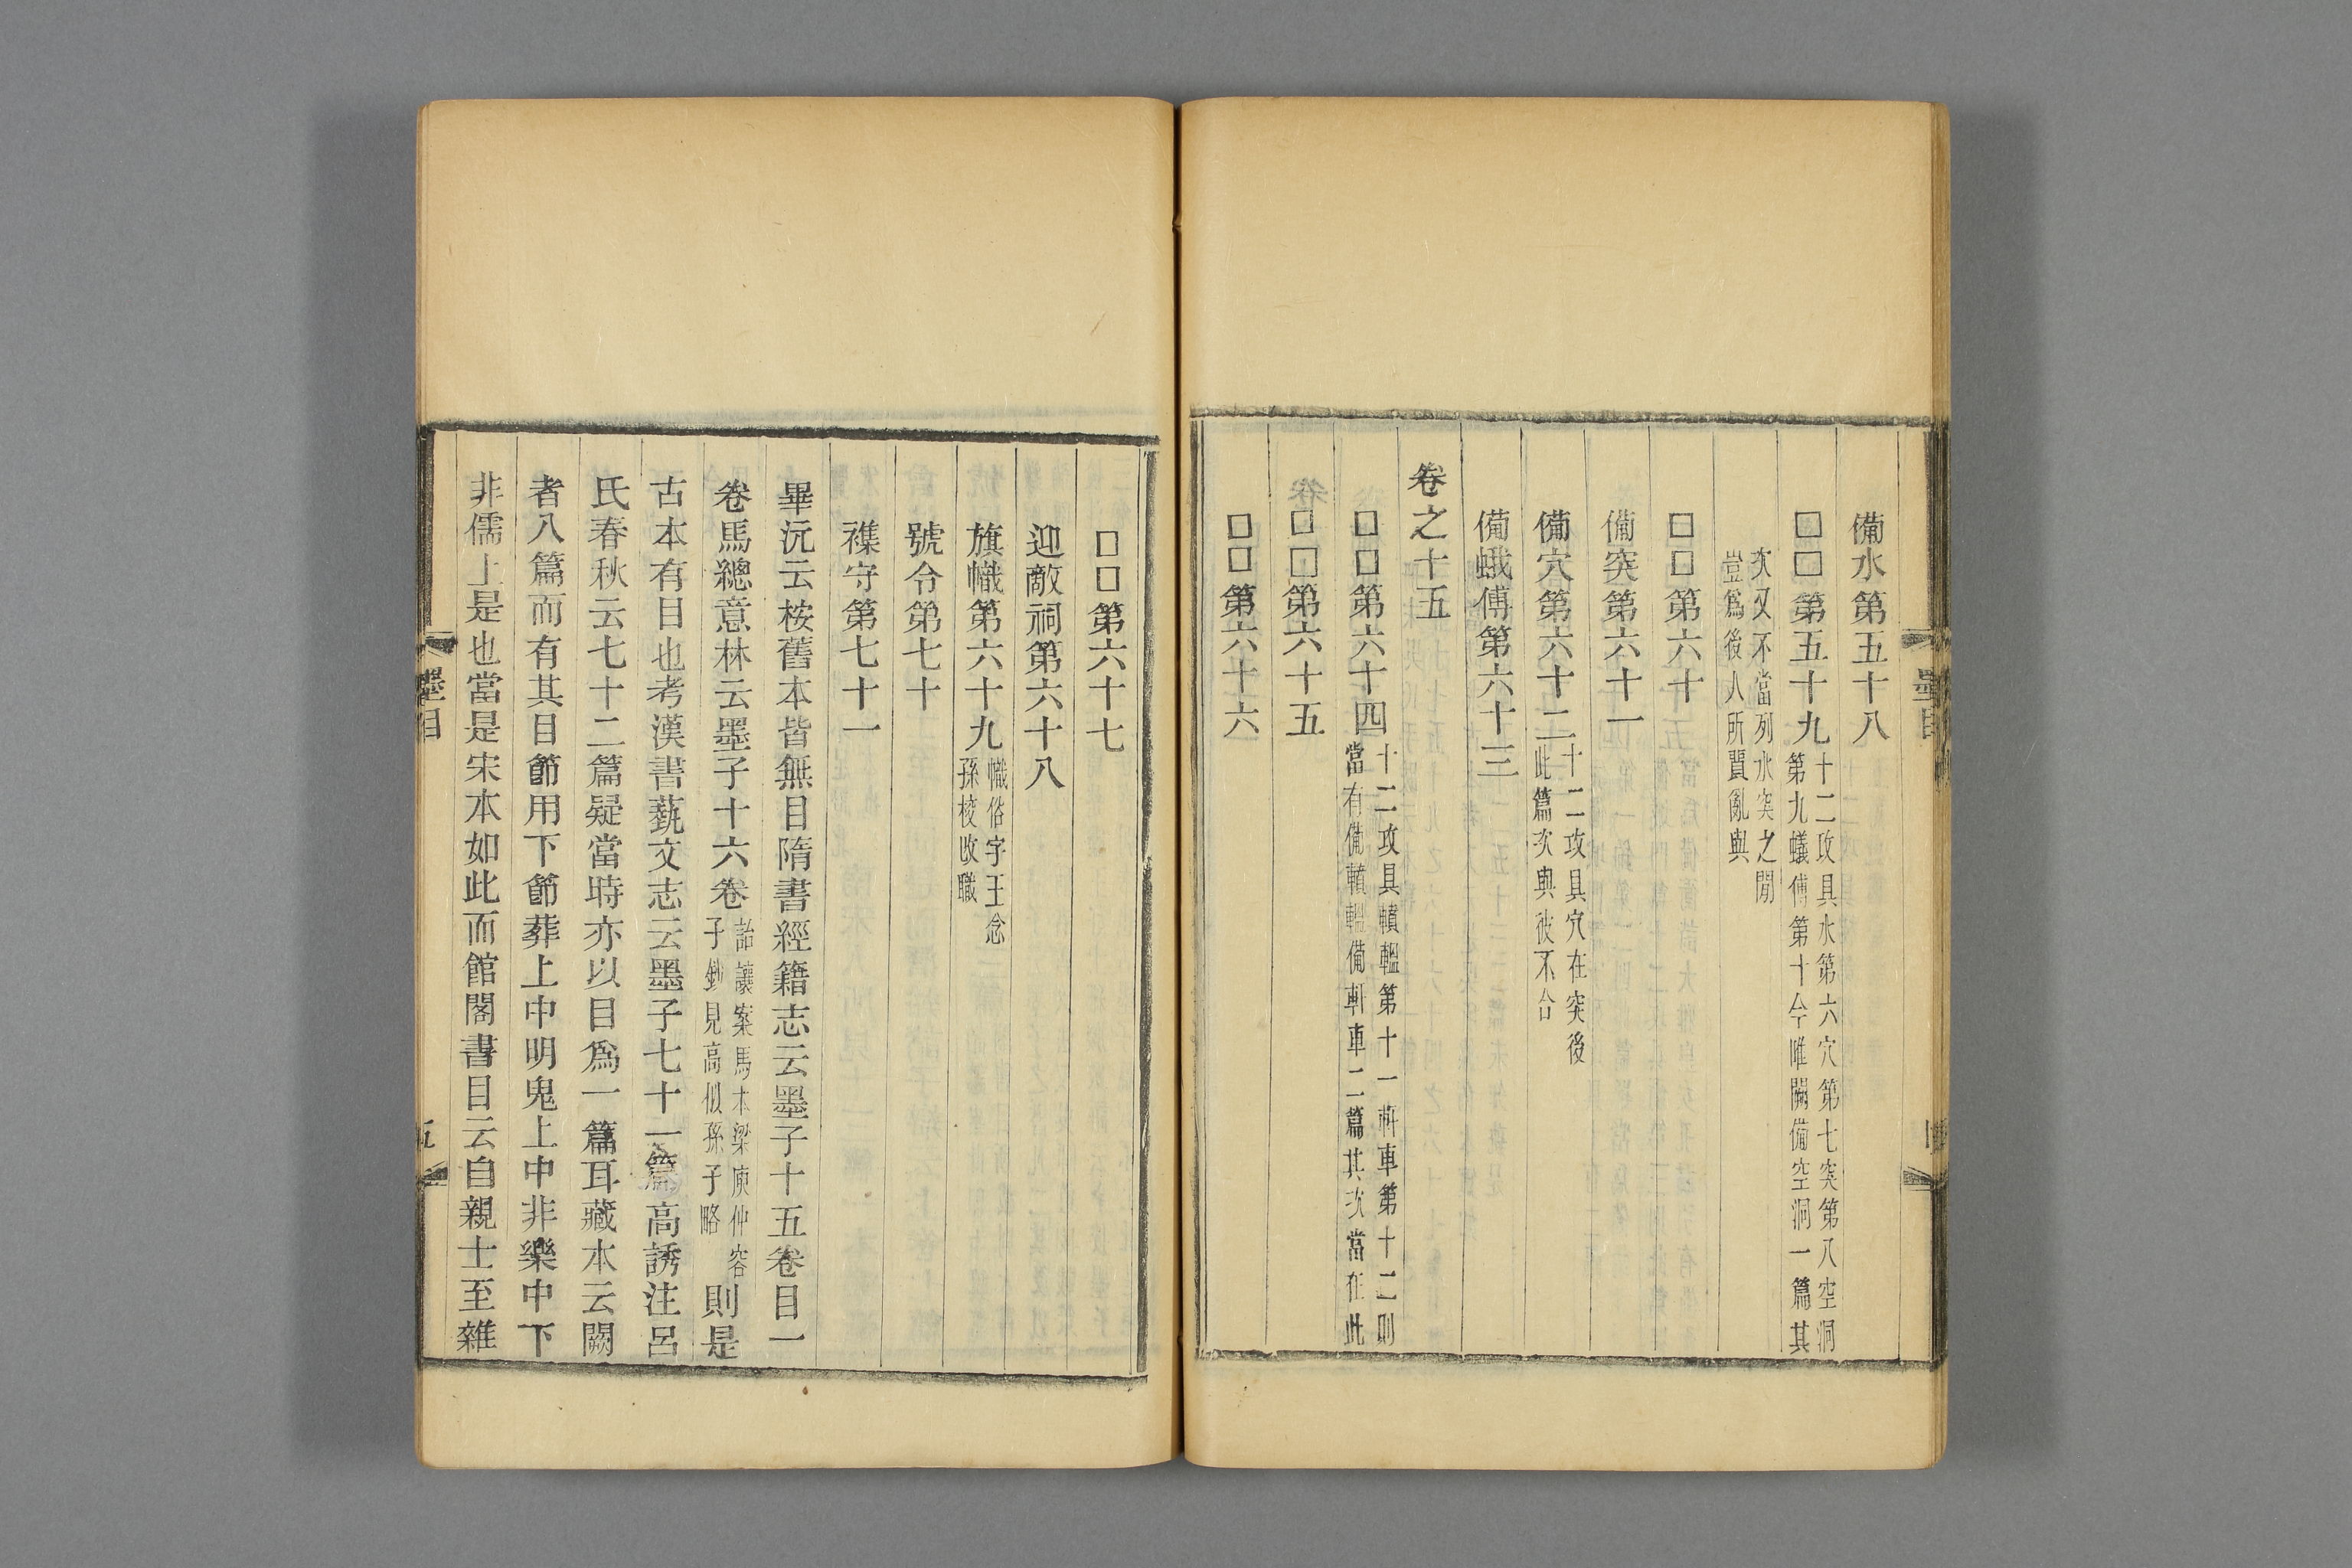 備水第五十八
□□第五十九十二攻具水第六穴第七突第八空洞
第九蟻傅第十今唯闕備空洞一篇其
次又不當列水突之閒
豈爲後人所貿亂與
□□第六十
備突第六十一
備穴第六十二十二攻具穴在突後
此篇次與彼不合
備蛾傅第六十三
卷之十五
□□第六十四十二攻具轒轀第十一軒車第十二則
當有備轒轀備軒車二篇其次當在此
□□第六十五
□□第六十六
□□第六十七
迎敵祠第六十八
旗幟第六十九幟俗字王念
孫校改職
號令第七十
襍守第七十一
畢沅云桉舊本皆無目隋書經籍志云墨子十五卷目一
卷馬總意林云墨子十六卷詒讓案馬本梁庾仲容
子鈔見高似孫子略則是
古本有目也考漢書蓺文志云墨子七十一篇高誘注呂
氏春秋云七十二篇疑當時亦以目爲一篇耳藏本云闕
者八篇而有其目節用下節葬上中明鬼上中非樂中下
非儒上是也當是宋本如此而館閣書目云自親士至雜
墨目
墨目
五